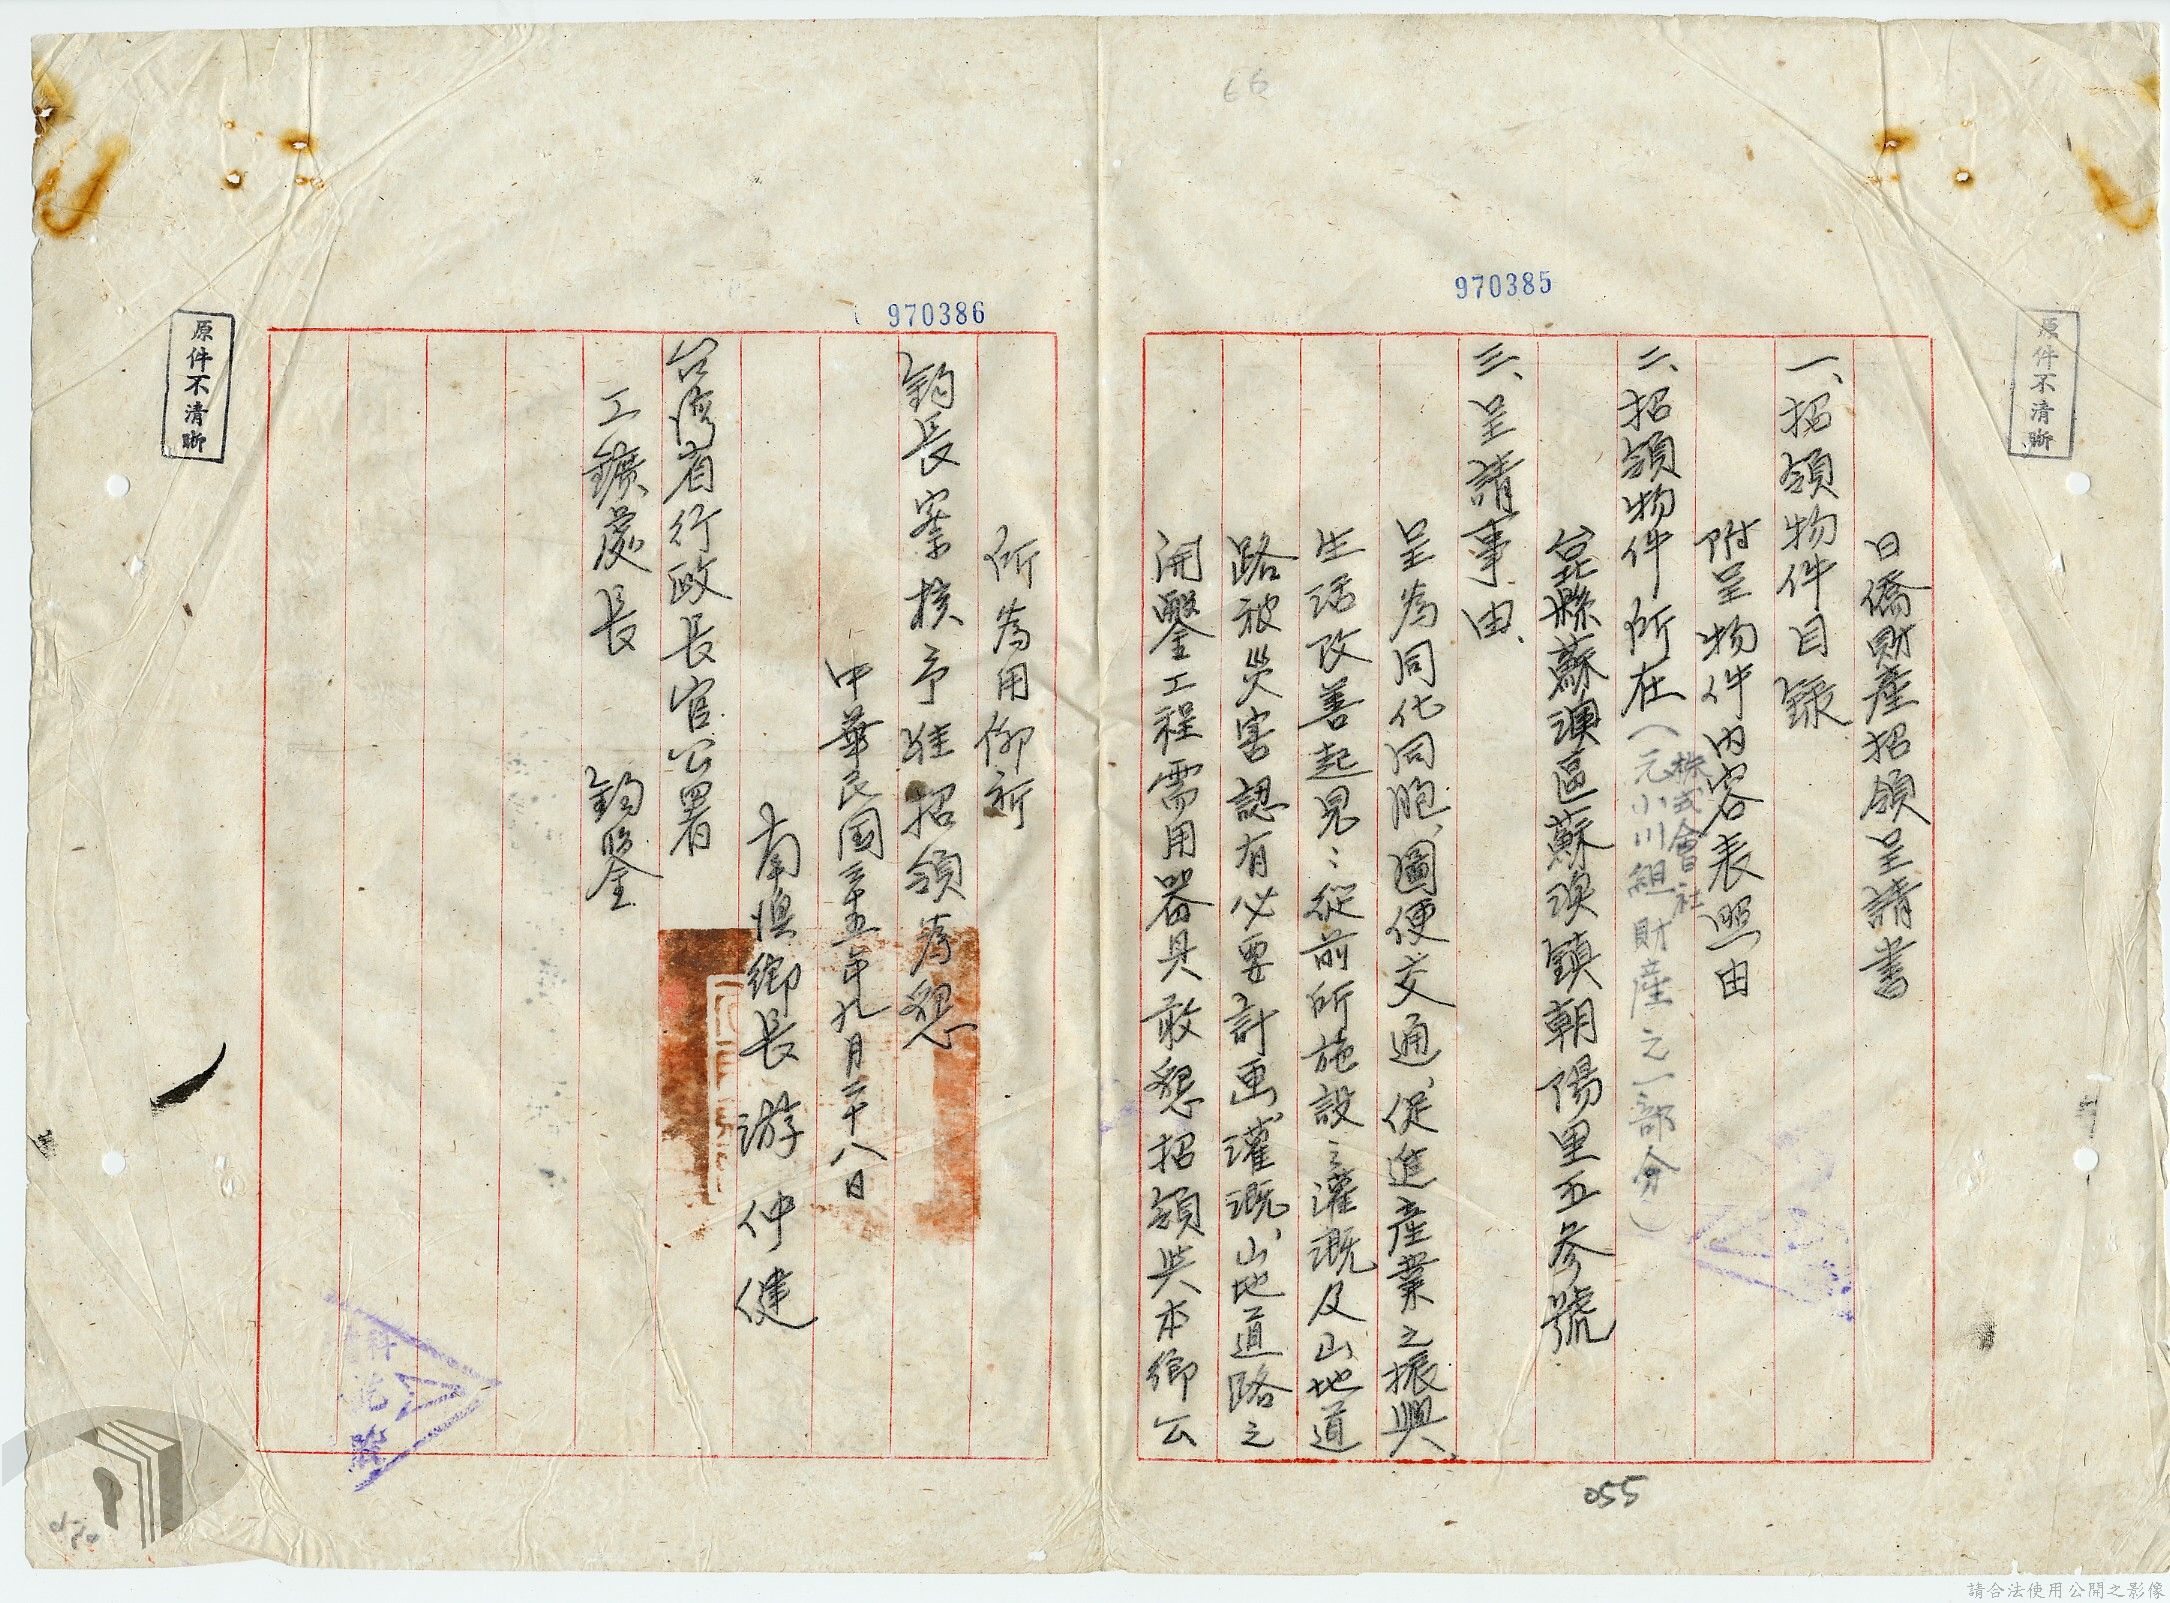 66
970385
原件不清晰
日僑財產招領呈請書
一、招領物件目錄
附呈物件內容表照由
二、招領物件所在(元小川組株式會社財產之一部分)
臺北縣蘇澳區蘇澳鎮朝陽里五參號
三、呈請事由、
呈為同化同胞、圖便交通、促進產業之振興、
生活改善起見ミ從前所施設ミ灌溉及山地道
路被災害認有必要計畫灌溉、山地道路之
開鑿工程需用器具敢懇招領與本鄉公
055
970386
所為用仰祈
鈞長察核予准招領為懇
中華民国三十五年九月二十八日
南澳鄉長 游仲健
台灣省行政長官公署
工鑛處長 鈞鑒
原件不清晰
請合法使用公開之影像